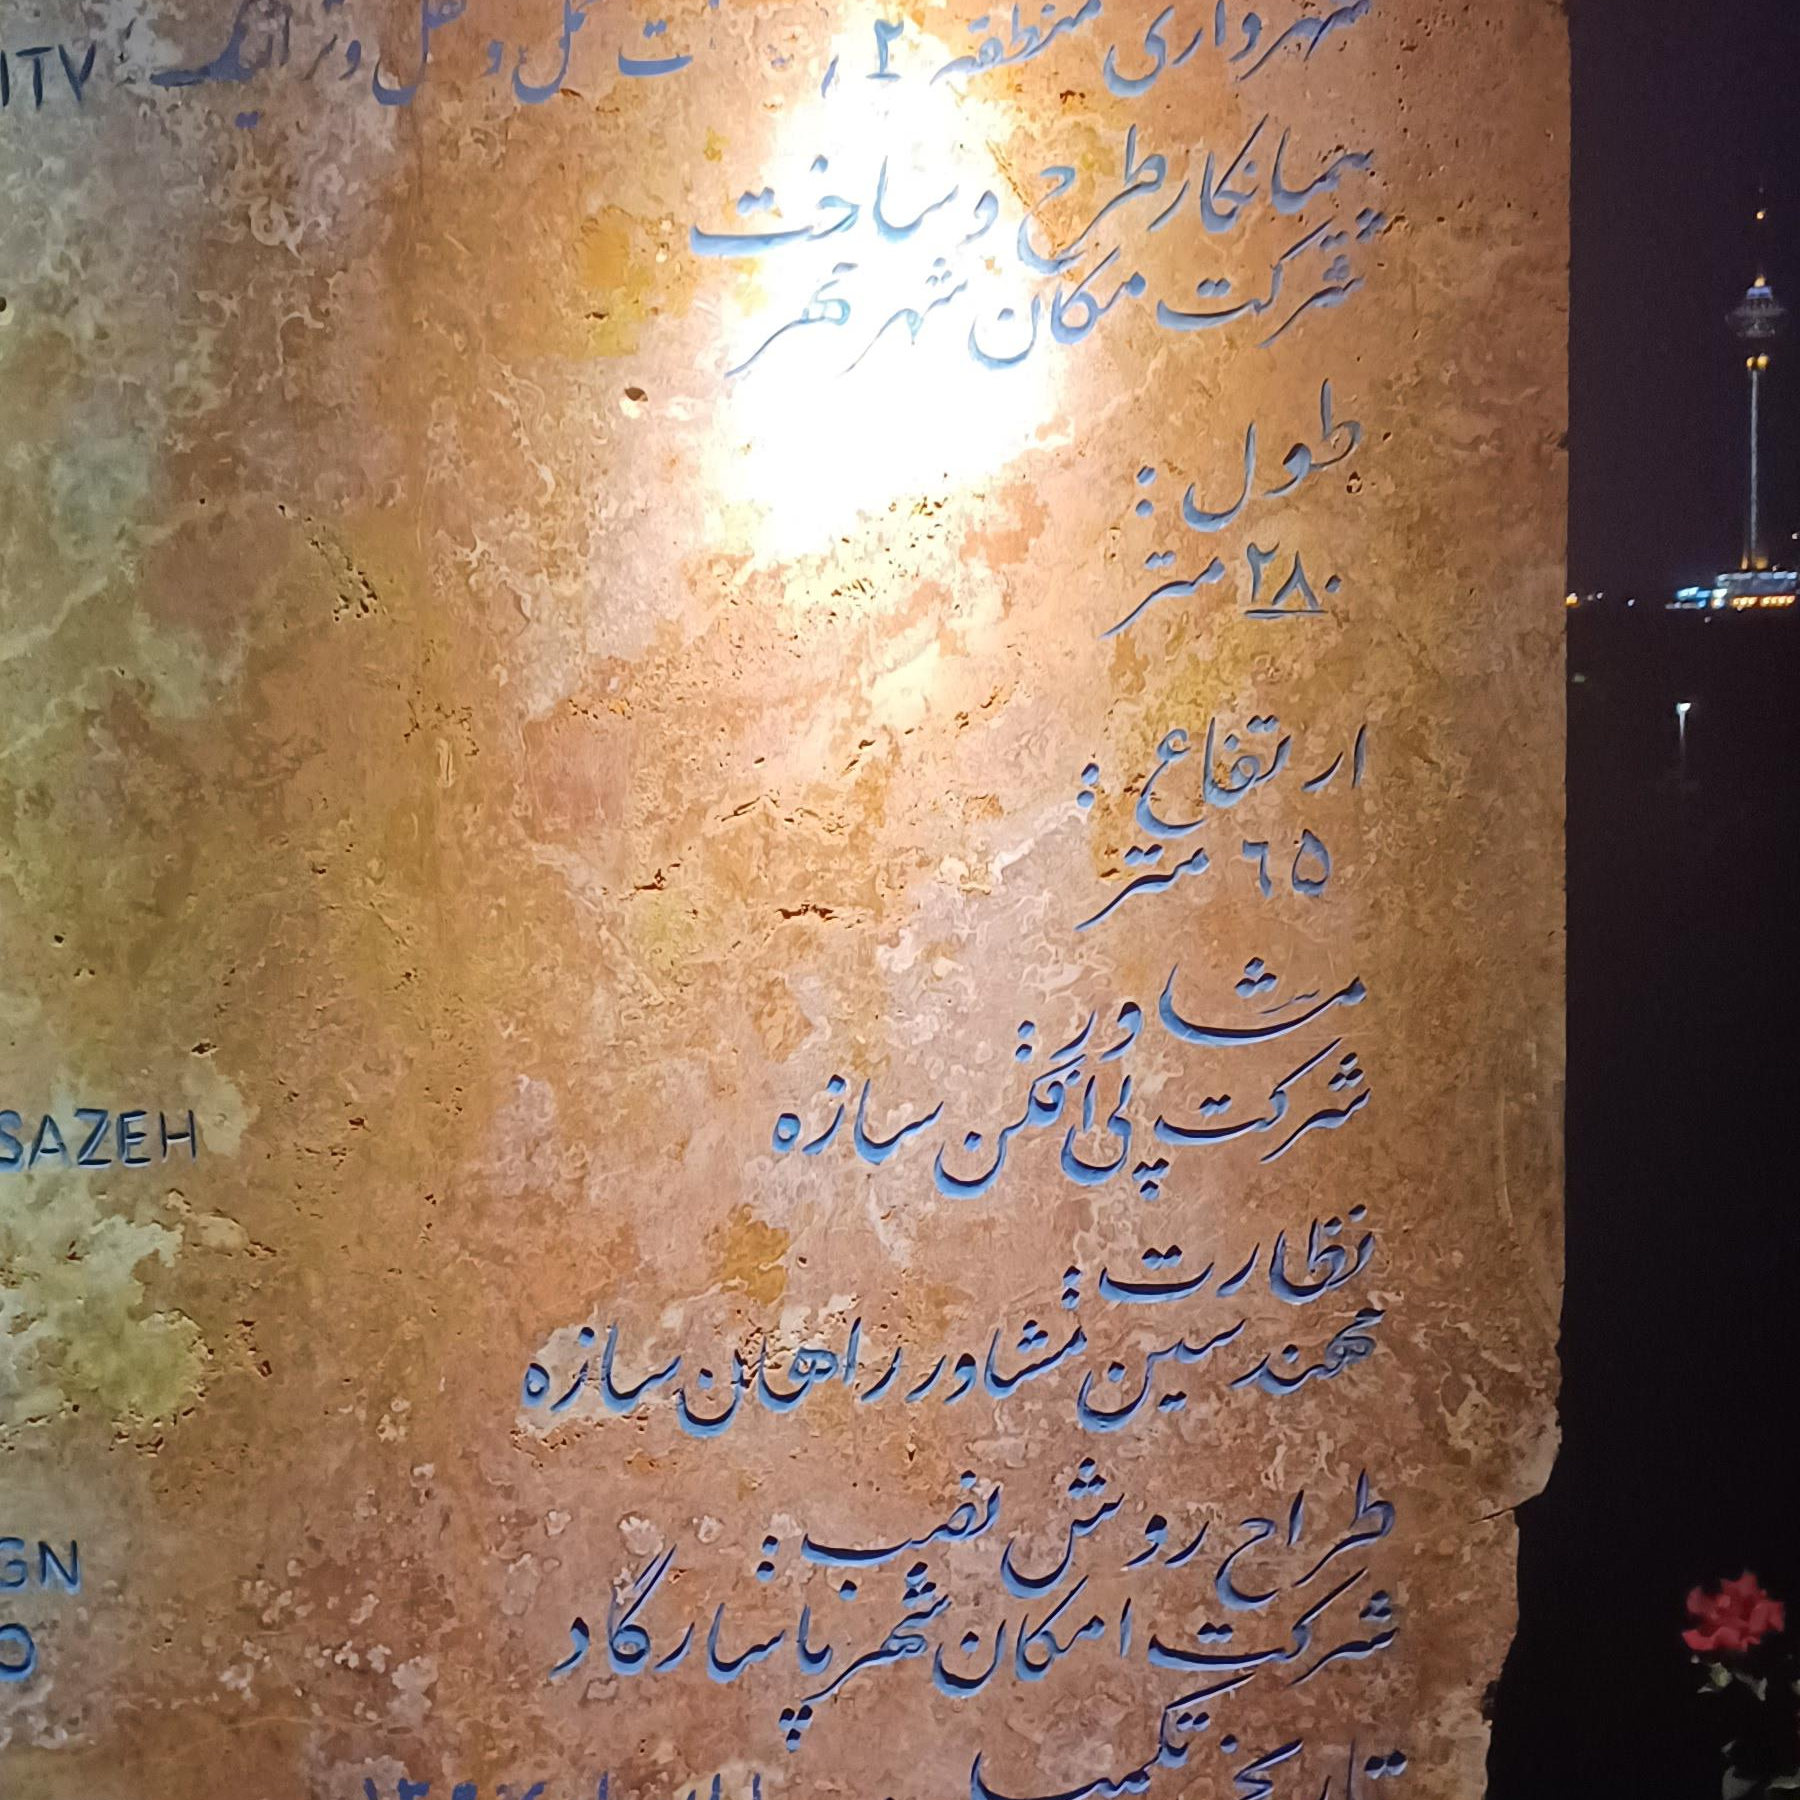 شهرداری منطقه ۲ , ت حمل و نقل و ترافیک
ITY
پیمانکار طرح و ساخت
شرکت مکان شهر تهر
طول :
۲۸۰ متر
ارتفاع :
٦۵ متر
مشاور :
شرکت پلی افکن سازه
SAZEH
نظارت :
مهندسین مشاور راهان سازه
طراح روش نصب :
شرکت امکان شهر پاسارگاد
GN
O
تاریخ تکمیل